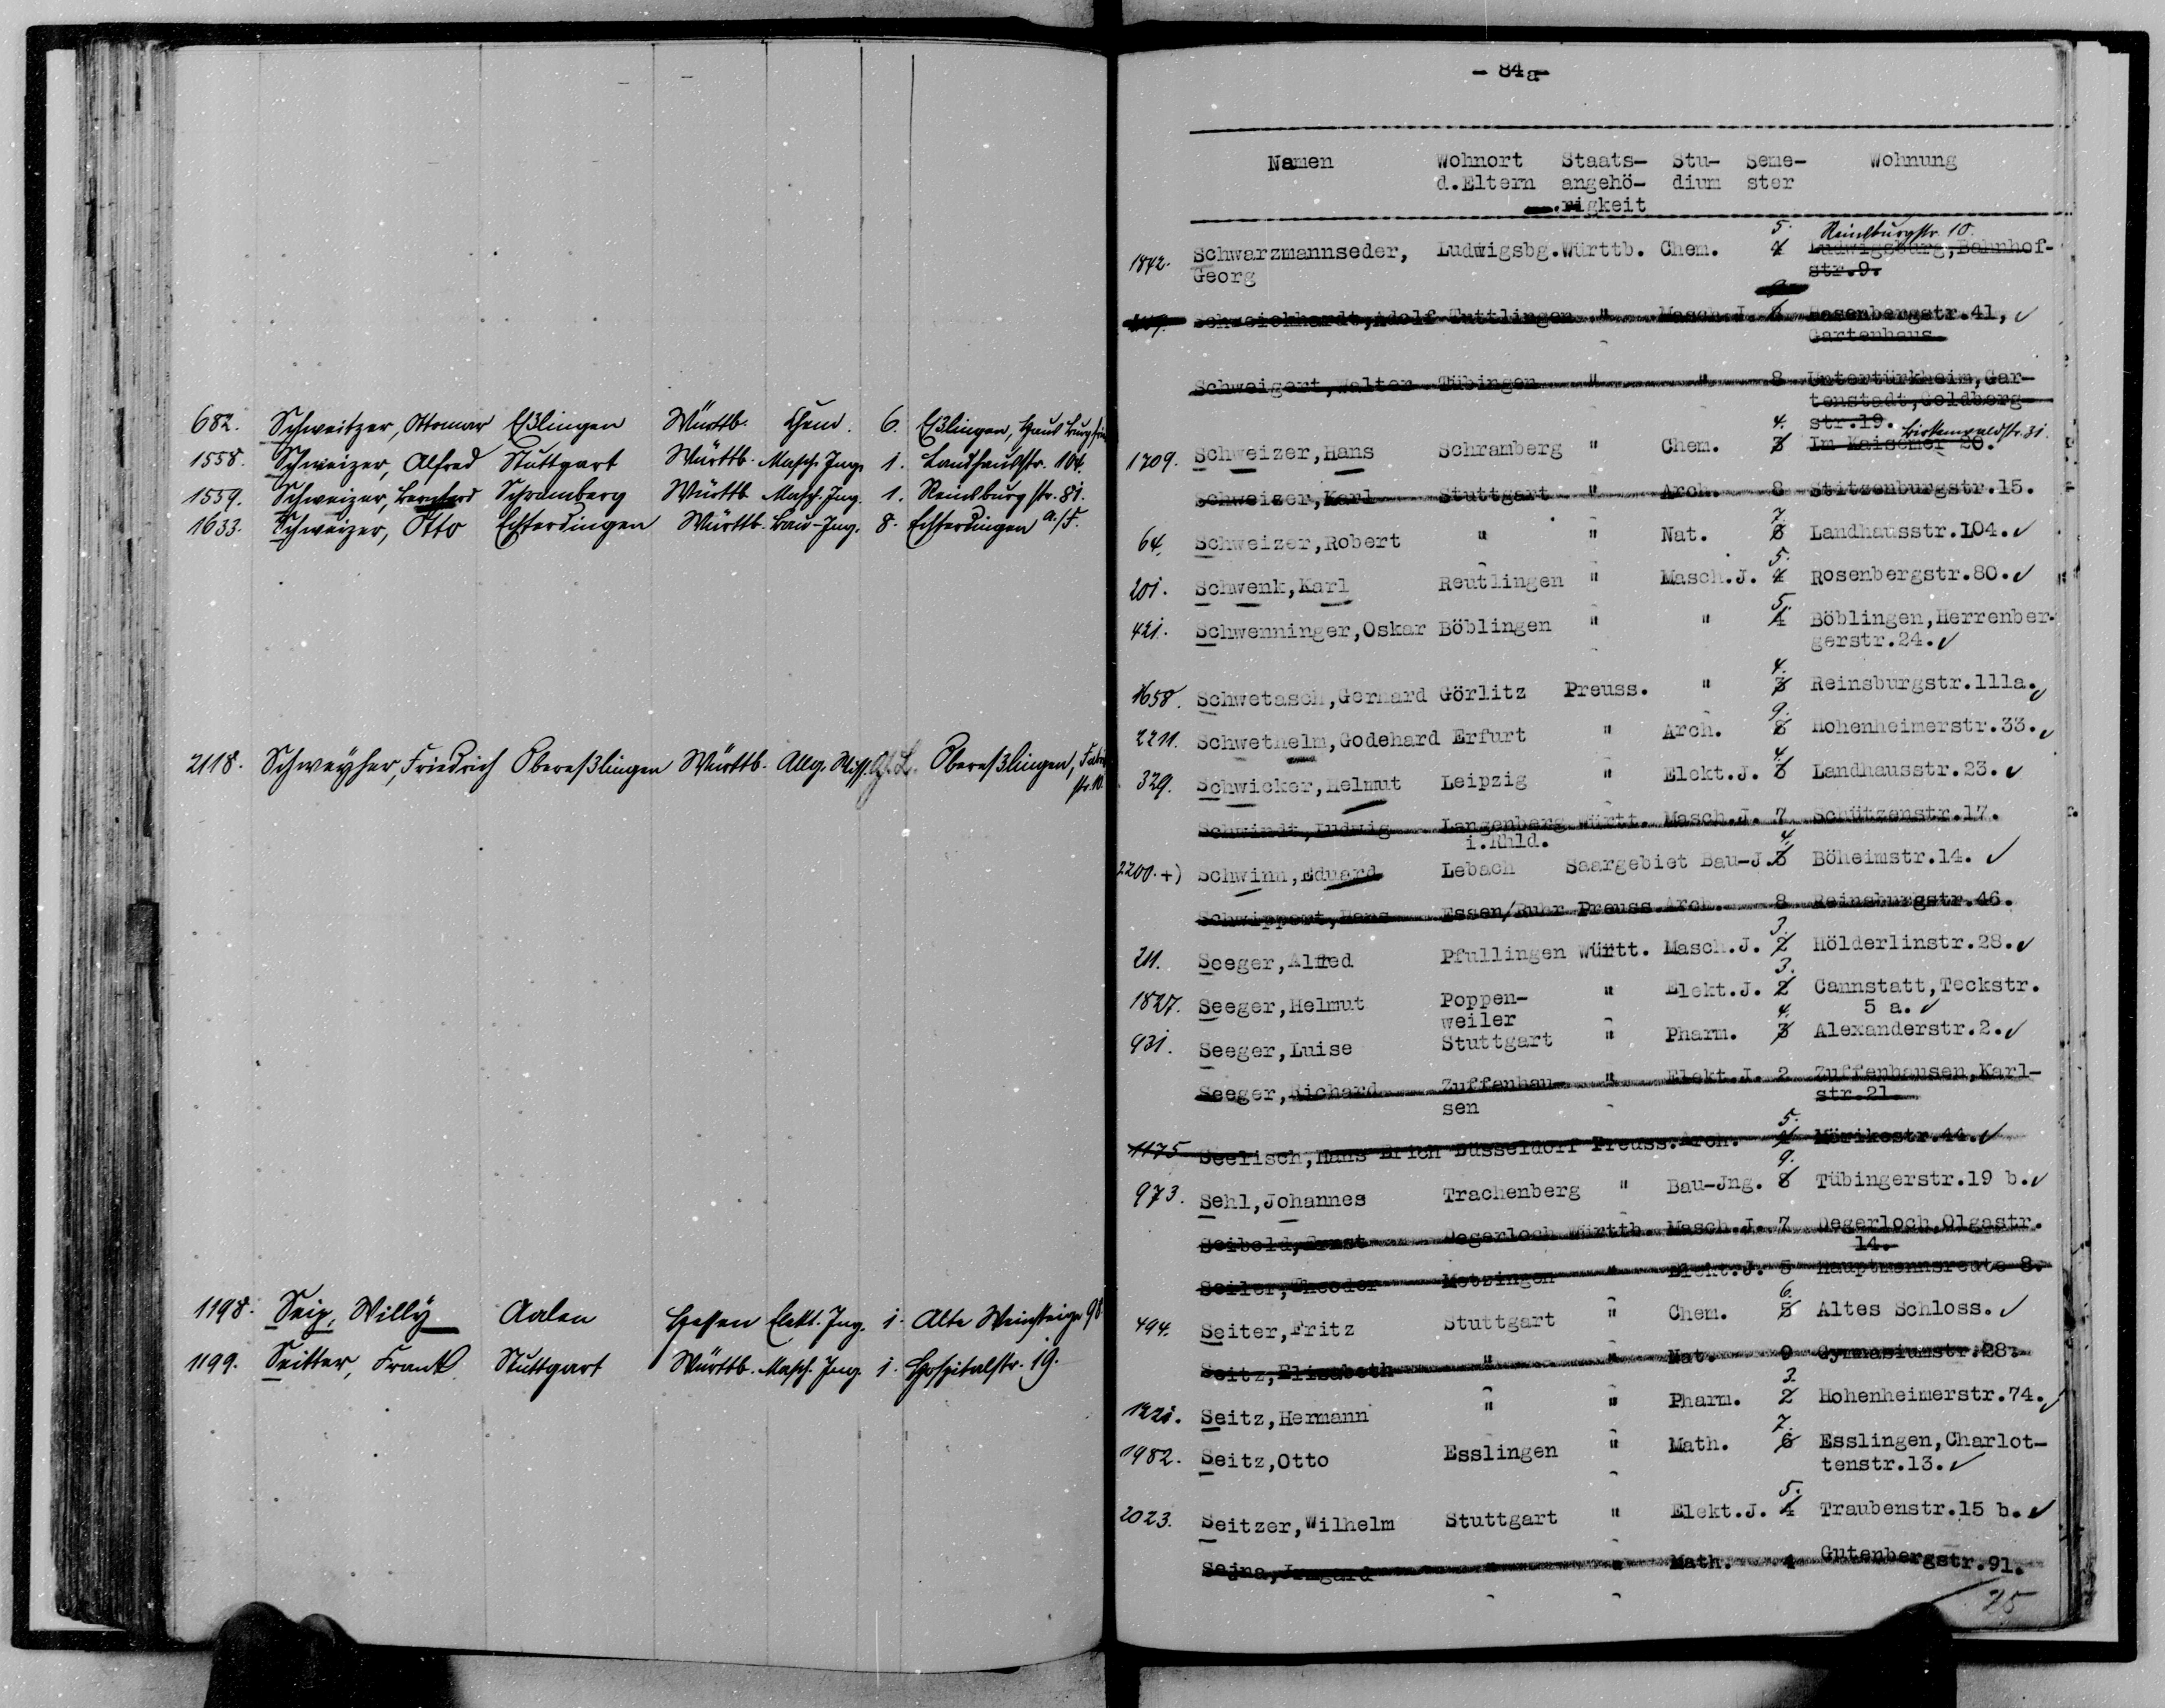 682. Schweitzer, Ottomar Eßlingen Württb. Chem. 6. Eßlingen, Haus Burgfried
1558. Schweizer, Alfred Stuttgart Württb. Masch. Ing. 1. Landhausstr. 104.
1559. Schweizer, Bernhard Schramberg Württb. Masch. Ing. 1. Reinsburgstr. 81.
1633. Schweizer, Otto Echterdingen Württb. Bau-Ing. 8. Echterdingen a./F.
2118. Schweyher, Friedrich Obereßlingen Württb. Allg. Wiss. Obereßlingen,
str. 10.
1198. Seip, Willy Aalen Hessen Elekt. Ing. 1. Alte Weinsteige 98
1199. Seitter, Frank Stuttgart Württb. Masch. Ing. 1. Hospitalstr. 19.
- 84a-
Namen Wohnort Staats- Stu- Seme- Wohnung
d.Eltern angehö- dium ster
rigkeit
5. Reinsburgstr. 10.
1842. Schwarzmannseder, Ludwigsbg. Württb. Chem. 4 Ludwigsburg,Bahnhof-
Georg str.9.
Schweickhardt,Adolf Tuttlingen " Masch.J. 6 Hasenbergstr.41, ✓
Gartenhaus
Schweigert,Walter Tübingen " " 8 Untertürkheim,Gar-
tenstadt,Goldberg-
4. str.19. Birkenwaldstr. 31.
1709. Schweizer,Hans Schramberg " Chem. 3 Im Kaisemer 20.
Schweizer,Karl Stuttgart " Arch. 8 Stitzenburgstr.15.
7.
64. Schweizer,Robert " " Nat. 6 Landhausstr.104. ✓
5.
201. Schwenk,Karl Reutlingen " Masch.J. 4 Rosenbergstr.80. ✓
5.
421. Schwenninger,Oskar Böblingen " " 4 Böblingen,Herrenber-
gerstr.24. ✓
4.
1658. Schwetasch,Gerhard Görlitz Preuss. " 3 Reinsburgstr.111a. ✓
9.
2211. Schwethelm,Godehard Erfurt " Arch. 8 Hohenheimerstr.33. ✓
4.
329. Schwicker,Helmut Leipzig " Elekt.J. 3 Landhausstr.23. ✓
Schwindt,Ludwig Langenberg Württ. Masch.J. 7 Schützenstr.17.
i.Rhld.
4.
2200. +) Schwinn,Eduard Lebach Saargebiet Bau-J. 3 Böheimstr.14. ✓
Schwippert,Hans Essen/Ruhr Preuss. Arch. 8 Reinsburgstr.46.
3.
211. Seeger,Alfred Pfullingen Württ. Masch.J. 2 Hölderlinstr.28. ✓
3.
1827. Seeger,Helmut Poppen- " Elekt.J. 2 Cannstatt,Teckstr.
weiler 5 a. ✓
4.
931. Seeger,Luise Stuttgart " Pharm. 3 Alexanderstr.2. ✓
Seeger,Richard Zuffenhau- " Elekt.J. 2 Zuffenhausen,Karl-
sen str.21.
5.
1175 Seelisch,Hans Erich Düsseldorf Preuss. Arch. 4 Mörikestr.44. ✓
9.
973. Sehl,Johannes Trachenberg " Bau-Jng. 8 Tübingerstr.19 b. ✓
Seibold,Ernst Degerloch Württb. Masch.J. 7 Degerloch,Olgastr.
14.
Seiler,Theodor Metzingen " Elekt.J. 5 Hauptmannsreute 8.
6.
494. Seiter,Fritz Stuttgart " Chem. 5 Altes Schloss. ✓
Seitz,Elisabeth " " Nat. 9 Gymnasiumstr.28.
3.
1221. Seitz,Hermann " " Pharm. 2 Hohenheimerstr.74. ✓
7.
1982. Seitz,Otto Esslingen " Math. 6 Esslingen,Charlot-
tenstr.13. ✓
5.
2023. Seitzer,Wilhelm Stuttgart " Elekt.J. 4 Traubenstr.15 b. ✓
Sejna,Jrmgard " " Math. 4 Gutenbergstr.91.
25